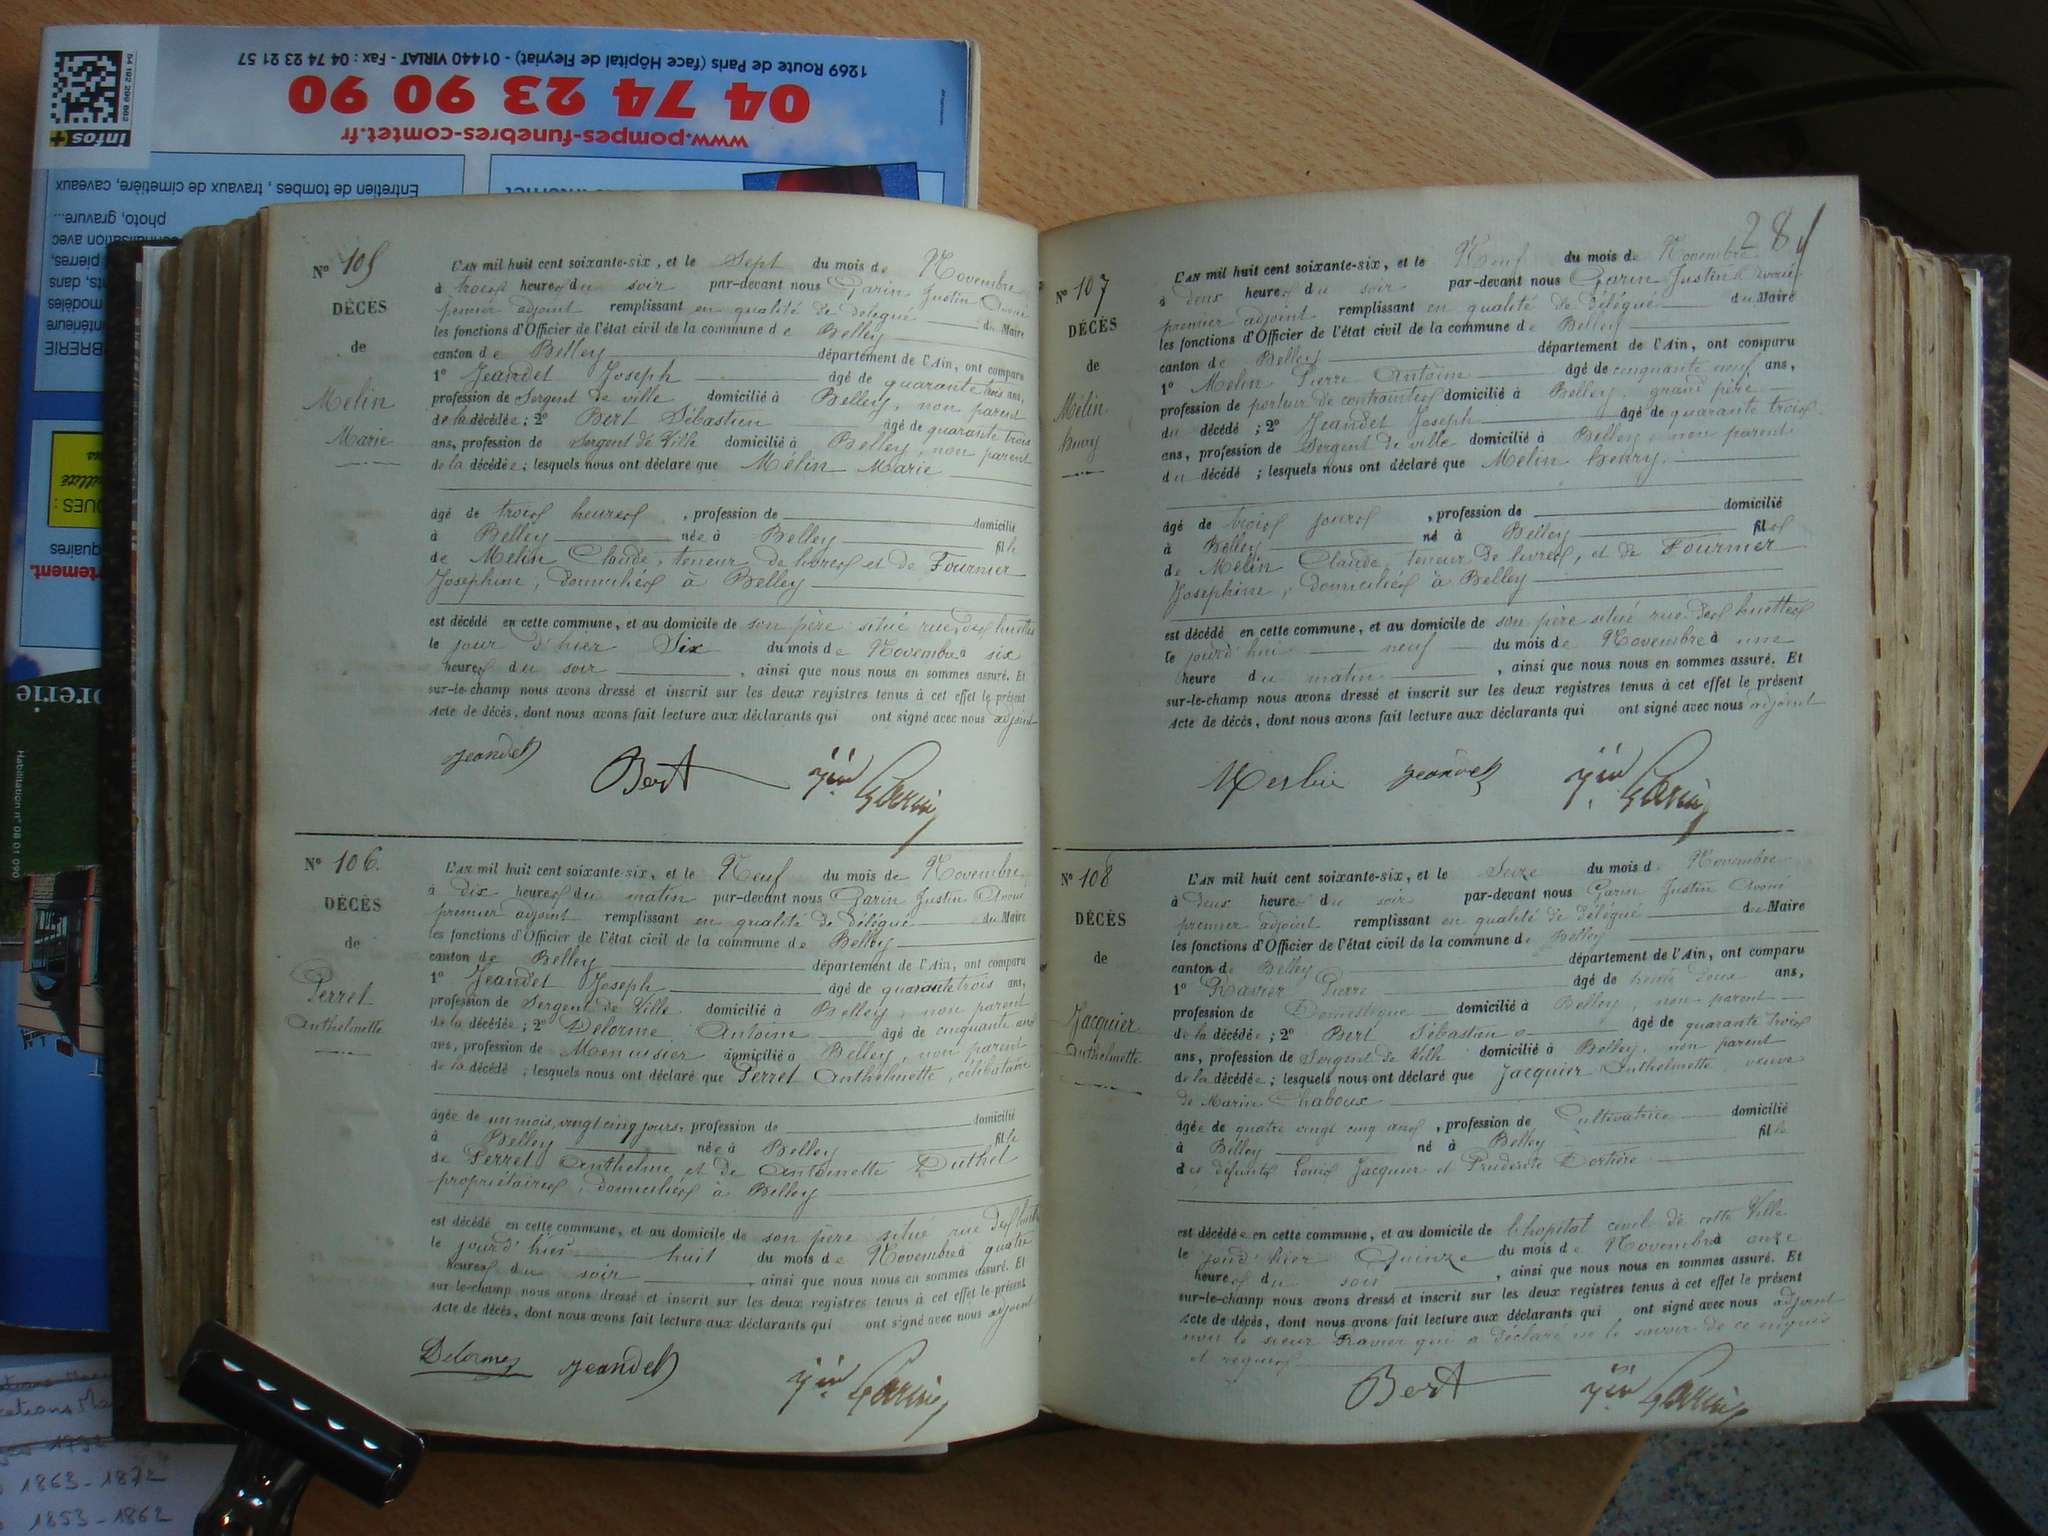 1269 Route de Paris (face Hôpital de Fleyriat) - 01440 VIRIAT - Fax : 04 74 23 21 57
04 74 23 90 90
www.pompes-funebres-comtet.fr
infos+
54 192 299 662
Entretien de tombes, travaux de cimetière, caveaux
photo, gravure...
Habilitation n° 08 01 090
N° 105
DÉCÈS
de
Melin
Marie
L'AN mil huit cent soixante-six, et le Sept du mois de Novembre
à trois heures du soir par-devant nous Garin Justin Avoué
premier adjoint remplissant en qualité de délégué du Maire
les fonctions d'Officier de l'état civil de la commune de Belley
canton de Belley département de l'Ain, ont comparu
1° Jeandet Joseph âgé de quarante trois ans,
profession de Sergent de ville domicilié à Belley, non parent
de la décédée ; 2° Bert Sébastien âgé de quarante trois
ans, profession de Sergent de Ville domicilié à Belley, non parent
de la décédée ; lesquels nous ont déclaré que Mélin Marie
âgé de trois heures, profession de domicilié
à Belley née à Belley fille
de Melin Claude, teneur de livres et de Fournier
Josephine, domiciliés à Belley
est décédé en cette commune, et au domicile de son père situé rue des huttes
le jour d'hier Six du mois de Novembre à six
heures du soir, ainsi que nous nous en sommes assuré. Et
sur-le-champ nous avons dressé et inscrit sur les deux registres tenus à cet effet le présent
Acte de décès, dont nous avons fait lecture aux déclarants qui ont signé avec nous adjoint
Jeandet Bert Garin
N° 106
DÉCÈS
de
Perret
Anthelmette
L'AN mil huit cent soixante-six, et le Neuf du mois de Novembre
à dix heures du matin par-devant nous Garin Justin Avoué
premier adjoint remplissant en qualité de délégué du Maire
les fonctions d'Officier de l'état civil de la commune de Belley
canton de Belley département de l'Ain, ont comparu
1° Jeandet Joseph âgé de quarante trois ans,
profession de Sergent de Ville domicilié à Belley, non parent
de la décédée ; 2° Delorme Antoine âgé de cinquante ans
ans, profession de Menuisier domicilié à Belley, non parent
de la décédé ; lesquels nous ont déclaré que Perret Anthelmette, célibataire
âgée de un mois, vingt cinq jours, profession de domicilié
à Belley née à Belley fille
de Perret Anthelme et de Antoinette Duthel
propriétaires, domiciliés à Belley
est décédé en cette commune, et au domicile de son père situé rue des
le jour d'hier huit du mois de Novembre à quatre
heures du soir, ainsi que nous nous en sommes assuré. Et
sur-le-champ nous avons dressé et inscrit sur les deux registres tenus à cet effet le présent
Acte de décès, dont nous avons fait lecture aux déclarants qui ont signé avec nous adjoint
Delorme Jeandet Garin
28
N° 107
DÉCÈS
de
Mélin
henry
L'AN mil huit cent soixante-six, et le Neuf du mois de Novembre
à deux heures du soir par-devant nous Garin Justin Avoué
premier adjoint remplissant en qualité de délégué du Maire
les fonctions d'Officier de l'état civil de la commune de Belley
canton de Belley département de l'Ain, ont comparu
1° Melin Pierre Antoine âgé de cinquante neuf ans,
profession de porteur de contraintes domicilié à Belley, grand père
du décédé ; 2° Jeandet Joseph âgé de quarante trois
ans, profession de Sergent de ville domicilié à Belley, non parent
du décédé ; lesquels nous ont déclaré que Melin henry
âgé de trois jours, profession de domicilié
à Belley né à Belley fils
de Melin Claude, teneur de livres, et de Fournier
Josephine, domiciliés à Belley
est décédé en cette commune, et au domicile de son père situé rue des huttes
le jourd'hui neuf du mois de Novembre à une
heure du matin, ainsi que nous nous en sommes assuré. Et
sur-le-champ nous avons dressé et inscrit sur les deux registres tenus à cet effet le présent
Acte de décès, dont nous avons fait lecture aux déclarants qui ont signé avec nous adjoint
Jeandet Garin
N° 108
DÉCÈS
de
Jacquier
Anthelmette
L'AN mil huit cent soixante-six, et le Seize du mois de Novembre
à deux heures du soir par-devant nous Garin Justin Avoué
premier adjoint remplissant en qualité de délégué du Maire
les fonctions d'Officier de l'état civil de la commune de Belley
canton de Belley département de l'Ain, ont comparu
1° Ravier Pierre âgé de trente deux ans,
profession de Domestique domicilié à Belley, non parent
de la décédée ; 2° Bert Sébastien âgé de quarante trois
ans, profession de Sergent de Ville domicilié à Belley, non parent
de la décédée ; lesquels nous ont déclaré que Jacquier Anthelmette, veuve
de Marin Chaboux
âgée de quatre vingt cinq ans, profession de Cultivatrice domicilié
à Belley né à Belley fille
des défunts Louis Jacquier et Prudence
est décédée en cette commune, et au domicile de l'hopital civil de cette Ville
le jour d'hier Quinze du mois de Novembre à onze
heures du soir, ainsi que nous nous en sommes assuré. Et
sur-le-champ nous avons dressé et inscrit sur les deux registres tenus à cet effet le présent
Acte de décès, dont nous avons fait lecture aux déclarants qui ont signé avec nous adjoint
non le sieur Ravier qui a déclaré ne le savoir de ce enquis
et requis
Bert Garin
1863-1872
1853-1862